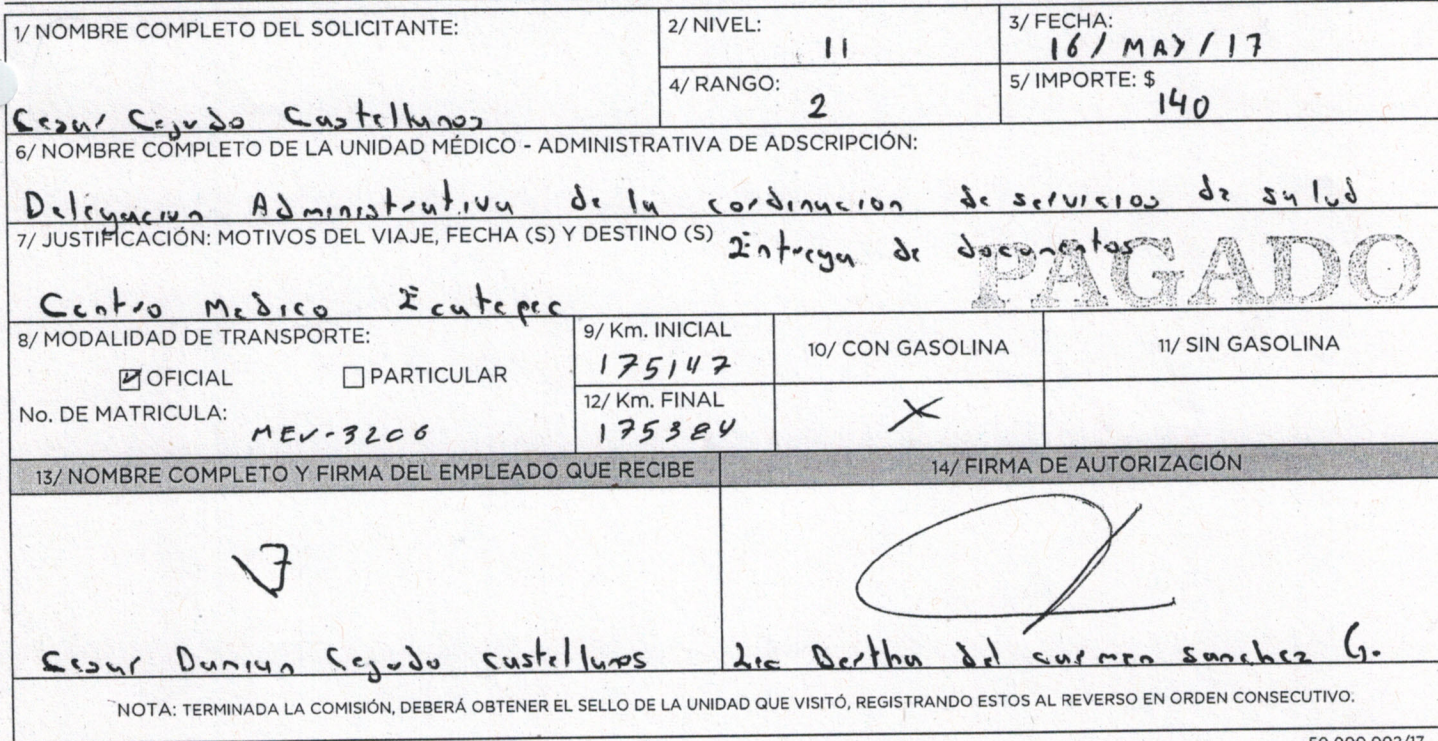 1/ NOMBRE COMPLETO DEL SOLICITANTE:
Cesar Cejudo Castellanos
2/ NIVEL:
11
3/ FECHA:
16/ MAY / 17
4/ RANGO:
2
5/ IMPORTE: $
140
6/ NOMBRE COMPLETO DE LA UNIDAD MÉDICO - ADMINISTRATIVA DE ADSCRIPCIÓN:
Delegacion Administrativa de la cordinacion de servicios de salud
7/ JUSTIFICACIÓN: MOTIVOS DEL VIAJE, FECHA (S) Y DESTINO (S) Entrega de documentos
PAGADO
Centro Medico Ecatepec
8/ MODALIDAD DE TRANSPORTE:
OFICIAL PARTICULAR
No. DE MATRICULA:
MEV-3206
9/ Km. INICIAL
175147
12/ Km. FINAL
175384
10/ CON GASOLINA
X
11/ SIN GASOLINA
13/ NOMBRE COMPLETO Y FIRMA DEL EMPLEADO QUE RECIBE
Cesar Damian Cejudo castellanos
14/ FIRMA DE AUTORIZACIÓN
Lic Bertha del carmen sanchez G.
NOTA: TERMINADA LA COMISIÓN, DEBERÁ OBTENER EL SELLO DE LA UNIDAD QUE VISITÓ, REGISTRANDO ESTOS AL REVERSO EN ORDEN CONSECUTIVO.